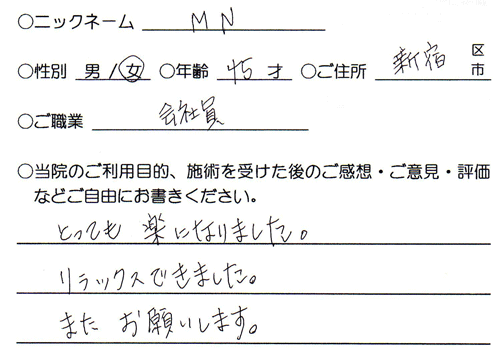 ○ニックネーム MN
○性別 男/女 ○年齢 45才 ○ご住所 新宿 区市
○ご職業 会社員
○当院のご利用目的、施術を受けた後のご感想・ご意見・評価
などご自由にお書きください。
とっても 楽になりました。
リラックスできました。
また お願いします。